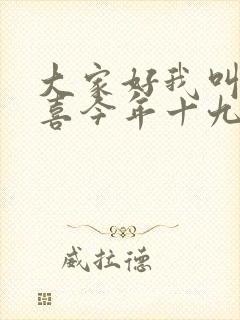 大家好我叫
喜今年十九
威拉德